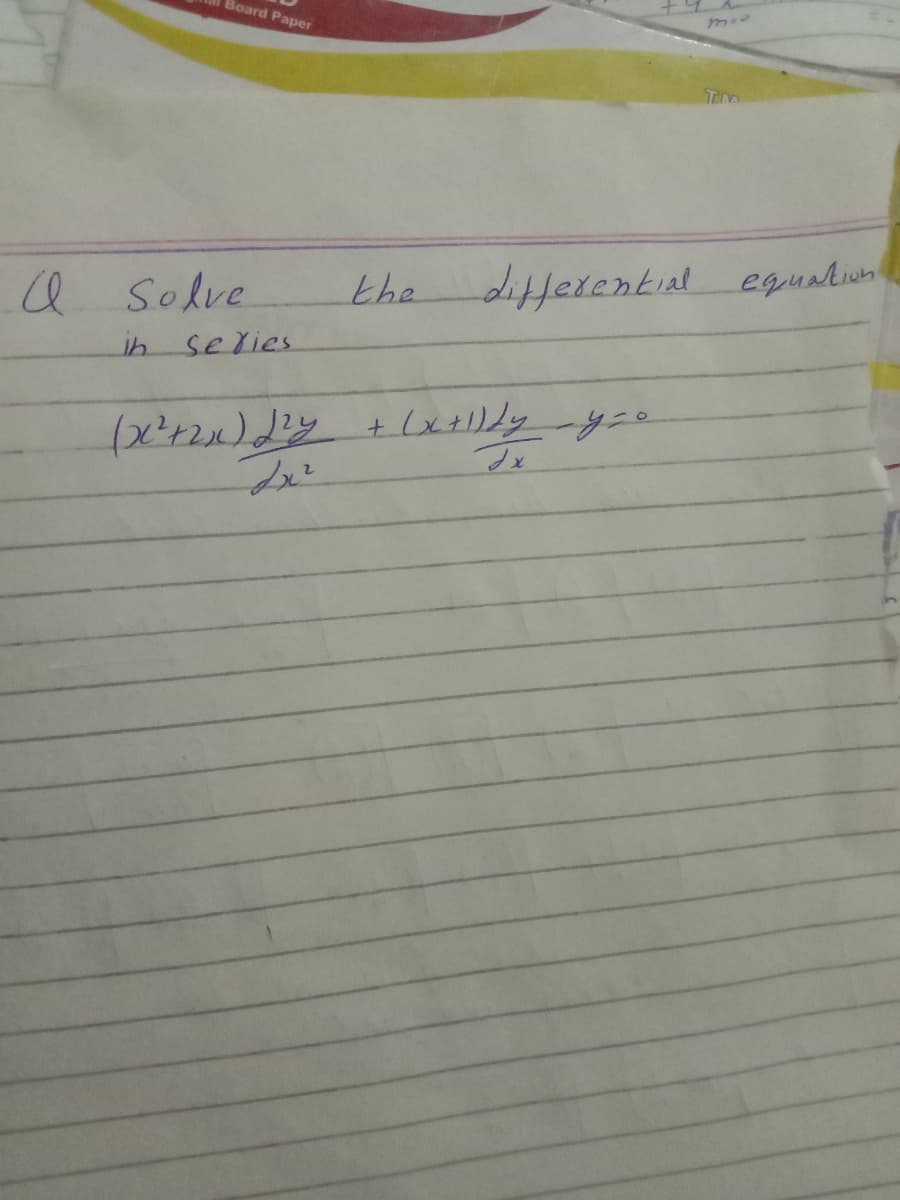 Board Paper
TM
Q Solve the differential equation
in series
(x²+2x) d²y/dx² + (x+1) dy/dx - y = 0